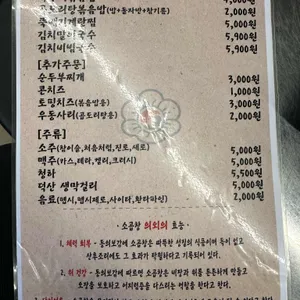 볶음밥(밥+돌자반+참기름) 2,000원
뚝배기계란찜 5,500원
김치말이국수 5,900원
김치비빔국수 5,900원
[추가주문]
순두부찌개 3,000원
콘치즈 1,000원
토핑치즈(볶음밥용) 3,000원
우동사리(곰도리탕용) 2,000원
[주류]
소주(참이슬,처음처럼,진로,새로) 5,000원
맥주(카스,테라,켈리,크러시) 5,000원
청하 5,500원
덕산 생막걸리 5,000원
음료(펩시,펩시제로,사이다,환타파인) 2,000원
· 소곱창 의외의 효능 ·
1. 체력 회복 - 동의보감에 소곱창은 따뜻한 성질의 식품이며 독이 없고
2. 위 건강 - 동의보감에 따르면 소곱창은